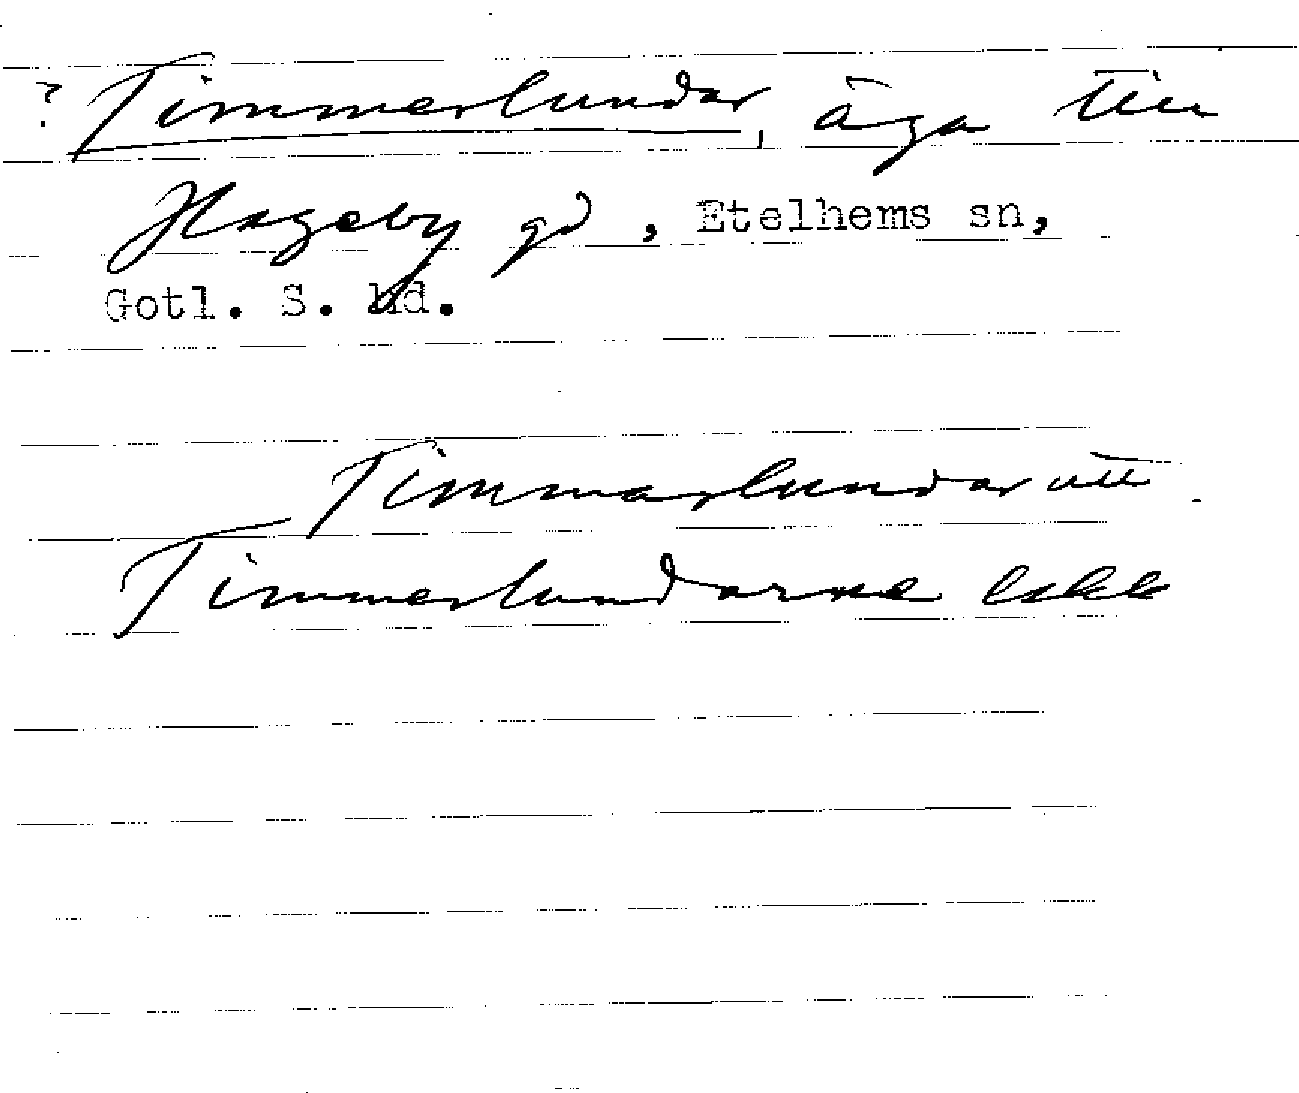 ? Timmerlundar, äga till
Hageby gd, Etelhems sn,
Gotl. S. hd.
Timmarlundar utt.
Timmerlundarne